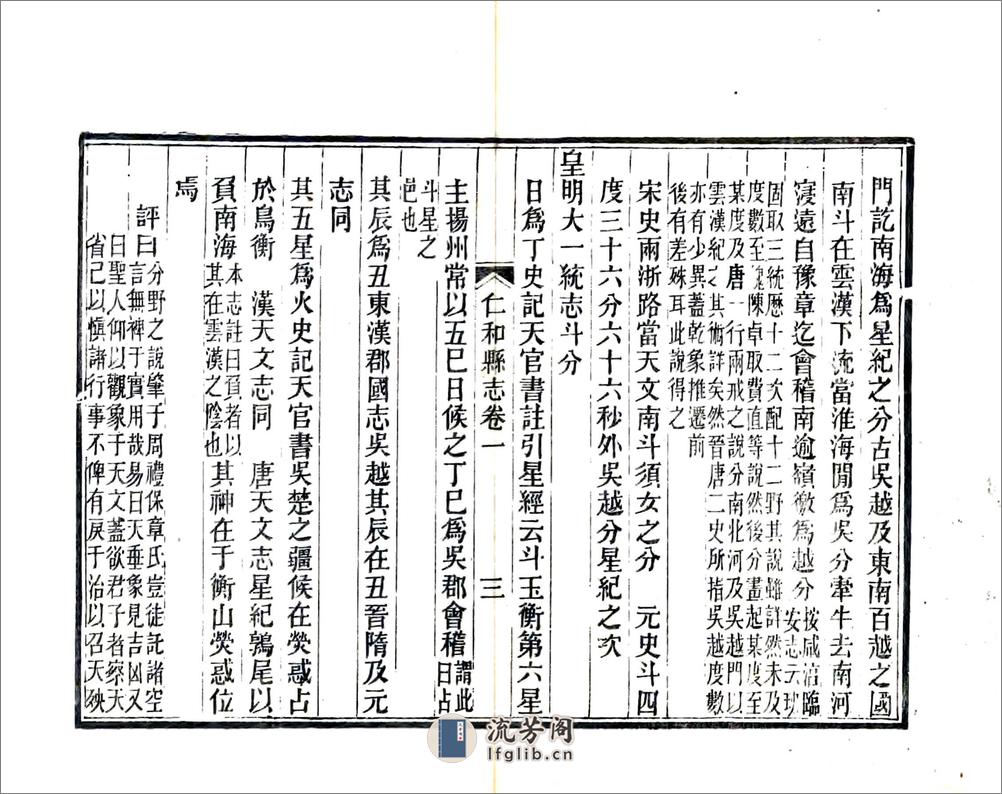 門訖南海爲星紀之分古吳越及東南百越之國
南斗在雲漢下流當淮海閒爲吳分牽牛去南河
寖遠自豫章迄會稽南逾嶺徼爲越分按咸淳臨
安志云班
固取三統歷十二次配十二野其說雖詳然未及
度數至魏陳卓取費直等說然後分畫起某度至
某度及唐一行兩戒之說分南北河及吳越門以
雲漢紀之其術詳矣然晉唐二史所指吳越度數
亦有少異蓋乾象推遷前
後有差殊耳此說得之
宋史兩浙路當天文南斗須女之分　元史斗四
度三十六分六十六秒外吳越分星紀之次
皇明大一統志斗分
仁和縣志卷一　三
日爲丁史記天官書註引星經云斗玉衡第六星
主揚州常以五巳日候之丁巳爲吳郡會稽謂此
日占
斗星之
邑也
其辰爲丑東漢郡國志吳越其辰在丑晉隋及元
志同
其五星爲火史記天官書吳楚之疆候在熒惑占
於鳥衡　漢天文志同　唐天文志星紀鶉尾以
負南海本志註曰負者以
其在雲漢之陰也其神在于衡山熒惑位
焉
評曰分野之說肇于周禮保章氏豈徒託諸空
言無裨于實用哉易曰天垂象見吉凶又
曰聖人仰以觀象于天文蓋欲君子者察天
省己以愼諸行事不俾有戾于治以召天殃
流芳阁
lfglib.cn